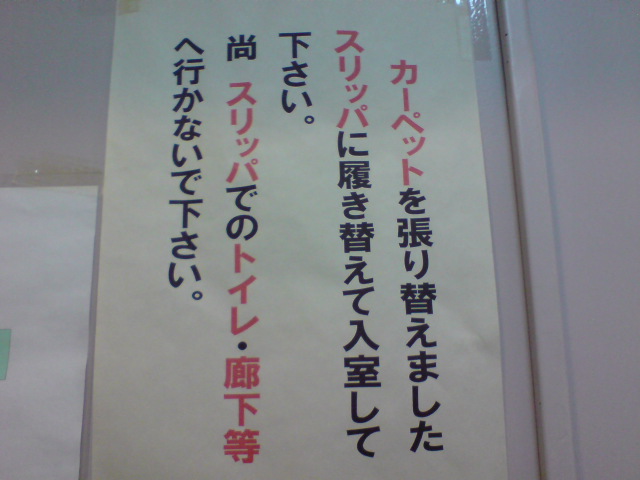 カーペットを張り替えました
スリッパに履き替えて入室して
下さい。
尚　スリッパでのトイレ・廊下等
へ行かないで下さい。